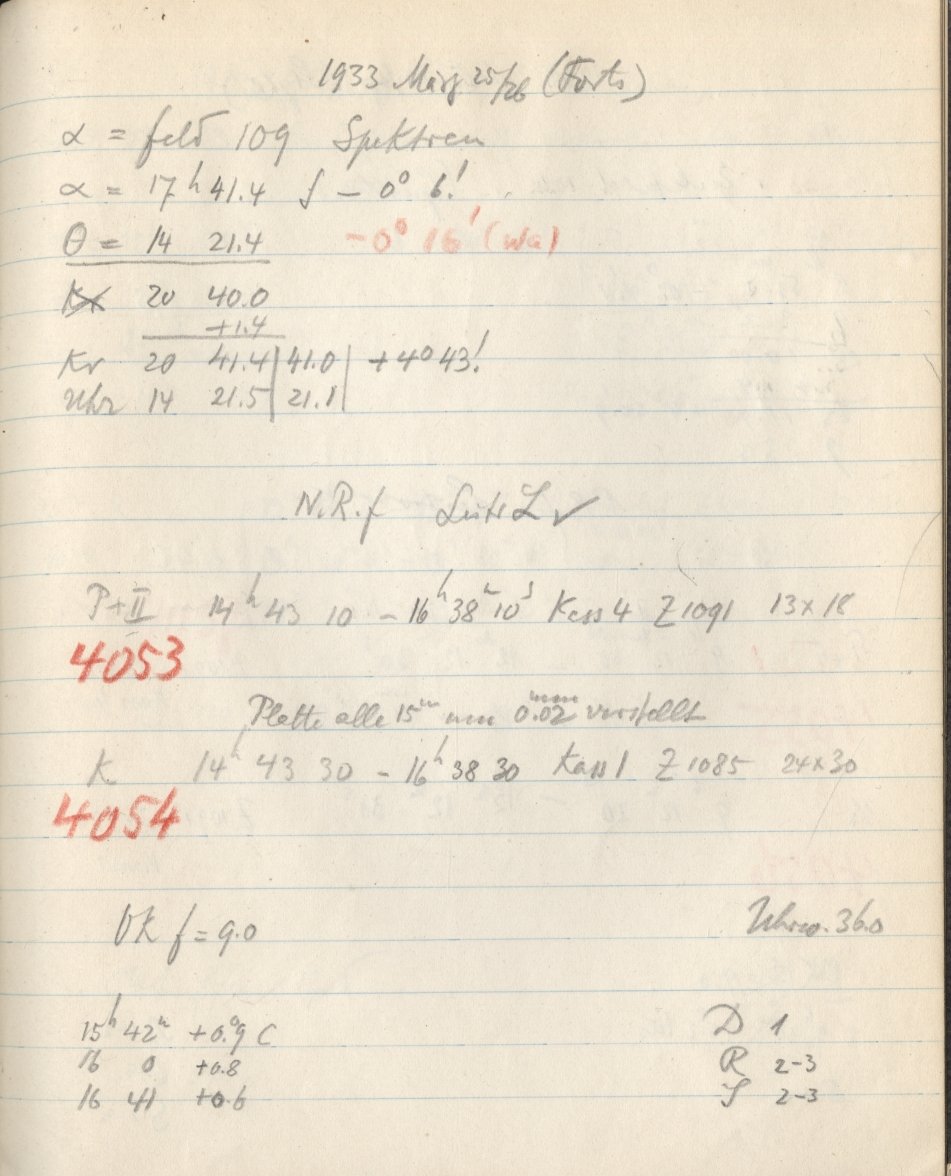 1933 März 25/26 (Forts)
α = feld 109 Spektren
α = 17ʰ 41.4 δ − 0° 6!
θ = 14 21.4 −0° 16' (Wa)
Kr 20 40.0
+1.4
Kr 20 41.4 | 41.0 | +4° 43!
Uhr 14 21.5 | 21.1 |
N.R.f ✓
P+II 14ʰ 43 10 − 16ʰ 38ᵐ 10ˢ Kass 4 Z 1091 13×18
4053
Platte alle 15ᵐ um 0.02ᵐᵐ verstellt
K 14ʰ 43 30 − 16ʰ 38 30 Kass 1 Z 1085 24×30
4054
OK f = 9.0 Uhrw. 36.0
15ʰ 42ᵐ +0.°9 C D 1
16 0 +0.8 R 2-3
16 41 +0.6 S 2-3